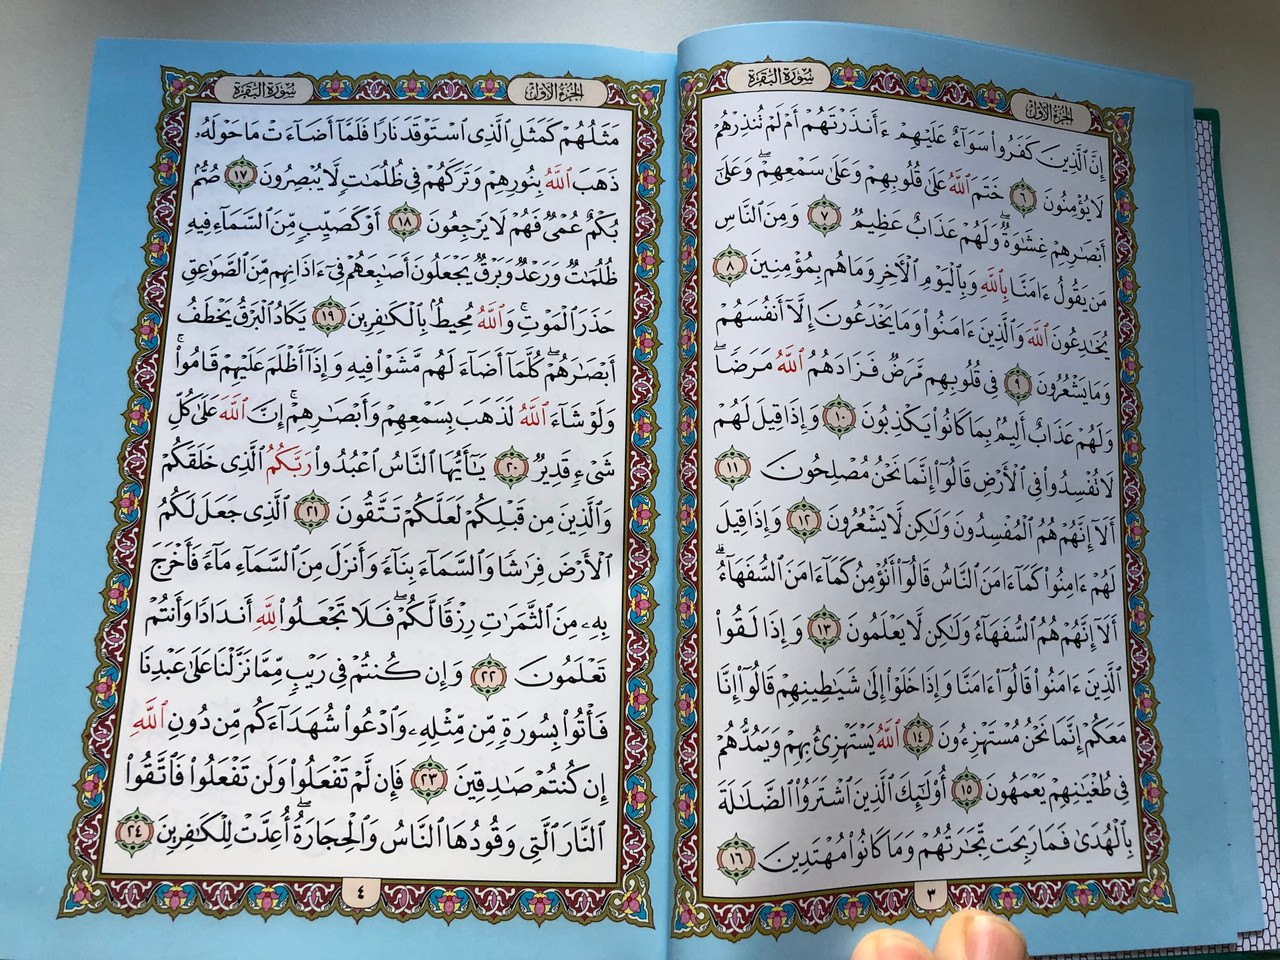 سورة البقرة
الجزء الأول
إِنَّ ٱلَّذِينَ كَفَرُوا۟ سَوَآءٌ عَلَيْهِمْ ءَأَنذَرْتَهُمْ أَمْ لَمْ تُنذِرْهُمْ
لَا يُؤْمِنُونَ ٦ خَتَمَ ٱللَّهُ عَلَىٰ قُلُوبِهِمْ وَعَلَىٰ سَمْعِهِمْ ۖ وَعَلَىٰٓ
أَبْصَٰرِهِمْ غِشَٰوَةٌ ۖ وَلَهُمْ عَذَابٌ عَظِيمٌ ٧ وَمِنَ ٱلنَّاسِ
مَن يَقُولُ ءَامَنَّا بِٱللَّهِ وَبِٱلْيَوْمِ ٱلْءَاخِرِ وَمَا هُم بِمُؤْمِنِينَ ٨
يُخَٰدِعُونَ ٱللَّهَ وَٱلَّذِينَ ءَامَنُوا۟ وَمَا يَخْدَعُونَ إِلَّآ أَنفُسَهُمْ
وَمَا يَشْعُرُونَ ٩ فِى قُلُوبِهِم مَّرَضٌ فَزَادَهُمُ ٱللَّهُ مَرَضًا ۖ
وَلَهُمْ عَذَابٌ أَلِيمٌۢ بِمَا كَانُوا۟ يَكْذِبُونَ ١٠ وَإِذَا قِيلَ لَهُمْ
لَا تُفْسِدُوا۟ فِى ٱلْأَرْضِ قَالُوٓا۟ إِنَّمَا نَحْنُ مُصْلِحُونَ ١١
أَلَآ إِنَّهُمْ هُمُ ٱلْمُفْسِدُونَ وَلَٰكِن لَّا يَشْعُرُونَ ١٢ وَإِذَا قِيلَ
لَهُمْ ءَامِنُوا۟ كَمَآ ءَامَنَ ٱلنَّاسُ قَالُوٓا۟ أَنُؤْمِنُ كَمَآ ءَامَنَ ٱلسُّفَهَآءُ ۗ
أَلَآ إِنَّهُمْ هُمُ ٱلسُّفَهَآءُ وَلَٰكِن لَّا يَعْلَمُونَ ١٣ وَإِذَا لَقُوا۟
ٱلَّذِينَ ءَامَنُوا۟ قَالُوٓا۟ ءَامَنَّا وَإِذَا خَلَوْا۟ إِلَىٰ شَيَٰطِينِهِمْ قَالُوٓا۟ إِنَّا
مَعَكُمْ إِنَّمَا نَحْنُ مُسْتَهْزِءُونَ ١٤ ٱللَّهُ يَسْتَهْزِئُ بِهِمْ وَيَمُدُّهُمْ
فِى طُغْيَٰنِهِمْ يَعْمَهُونَ ١٥ أُو۟لَٰٓئِكَ ٱلَّذِينَ ٱشْتَرَوُا۟ ٱلضَّلَٰلَةَ
بِٱلْهُدَىٰ فَمَا رَبِحَت تِّجَٰرَتُهُمْ وَمَا كَانُوا۟ مُهْتَدِينَ ١٦
٣
سورة البقرة
الجزء الأول
مَثَلُهُمْ كَمَثَلِ ٱلَّذِى ٱسْتَوْقَدَ نَارًا فَلَمَّآ أَضَآءَتْ مَا حَوْلَهُۥ
ذَهَبَ ٱللَّهُ بِنُورِهِمْ وَتَرَكَهُمْ فِى ظُلُمَٰتٍ لَّا يُبْصِرُونَ ١٧ صُمٌّۢ
بُكْمٌ عُمْىٌ فَهُمْ لَا يَرْجِعُونَ ١٨ أَوْ كَصَيِّبٍ مِّنَ ٱلسَّمَآءِ فِيهِ
ظُلُمَٰتٌ وَرَعْدٌ وَبَرْقٌ يَجْعَلُونَ أَصَٰبِعَهُمْ فِىٓ ءَاذَانِهِم مِّنَ ٱلصَّوَٰعِقِ
حَذَرَ ٱلْمَوْتِ ۚ وَٱللَّهُ مُحِيطٌۢ بِٱلْكَٰفِرِينَ ١٩ يَكَادُ ٱلْبَرْقُ يَخْطَفُ
أَبْصَٰرَهُمْ ۖ كُلَّمَآ أَضَآءَ لَهُم مَّشَوْا۟ فِيهِ وَإِذَآ أَظْلَمَ عَلَيْهِمْ قَامُوا۟ ۚ
وَلَوْ شَآءَ ٱللَّهُ لَذَهَبَ بِسَمْعِهِمْ وَأَبْصَٰرِهِمْ ۚ إِنَّ ٱللَّهَ عَلَىٰ كُلِّ
شَىْءٍ قَدِيرٌ ٢٠ يَٰٓأَيُّهَا ٱلنَّاسُ ٱعْبُدُوا۟ رَبَّكُمُ ٱلَّذِى خَلَقَكُمْ
وَٱلَّذِينَ مِن قَبْلِكُمْ لَعَلَّكُمْ تَتَّقُونَ ٢١ ٱلَّذِى جَعَلَ لَكُمُ
ٱلْأَرْضَ فِرَٰشًا وَٱلسَّمَآءَ بِنَآءً وَأَنزَلَ مِنَ ٱلسَّمَآءِ مَآءً فَأَخْرَجَ
بِهِۦ مِنَ ٱلثَّمَرَٰتِ رِزْقًا لَّكُمْ ۖ فَلَا تَجْعَلُوا۟ لِلَّهِ أَندَادًا وَأَنتُمْ
تَعْلَمُونَ ٢٢ وَإِن كُنتُمْ فِى رَيْبٍ مِّمَّا نَزَّلْنَا عَلَىٰ عَبْدِنَا
فَأْتُوا۟ بِسُورَةٍ مِّن مِّثْلِهِۦ وَٱدْعُوا۟ شُهَدَآءَكُم مِّن دُونِ ٱللَّهِ
إِن كُنتُمْ صَٰدِقِينَ ٢٣ فَإِن لَّمْ تَفْعَلُوا۟ وَلَن تَفْعَلُوا۟ فَٱتَّقُوا۟
ٱلنَّارَ ٱلَّتِى وَقُودُهَا ٱلنَّاسُ وَٱلْحِجَارَةُ ۖ أُعِدَّتْ لِلْكَٰفِرِينَ ٢٤
٤